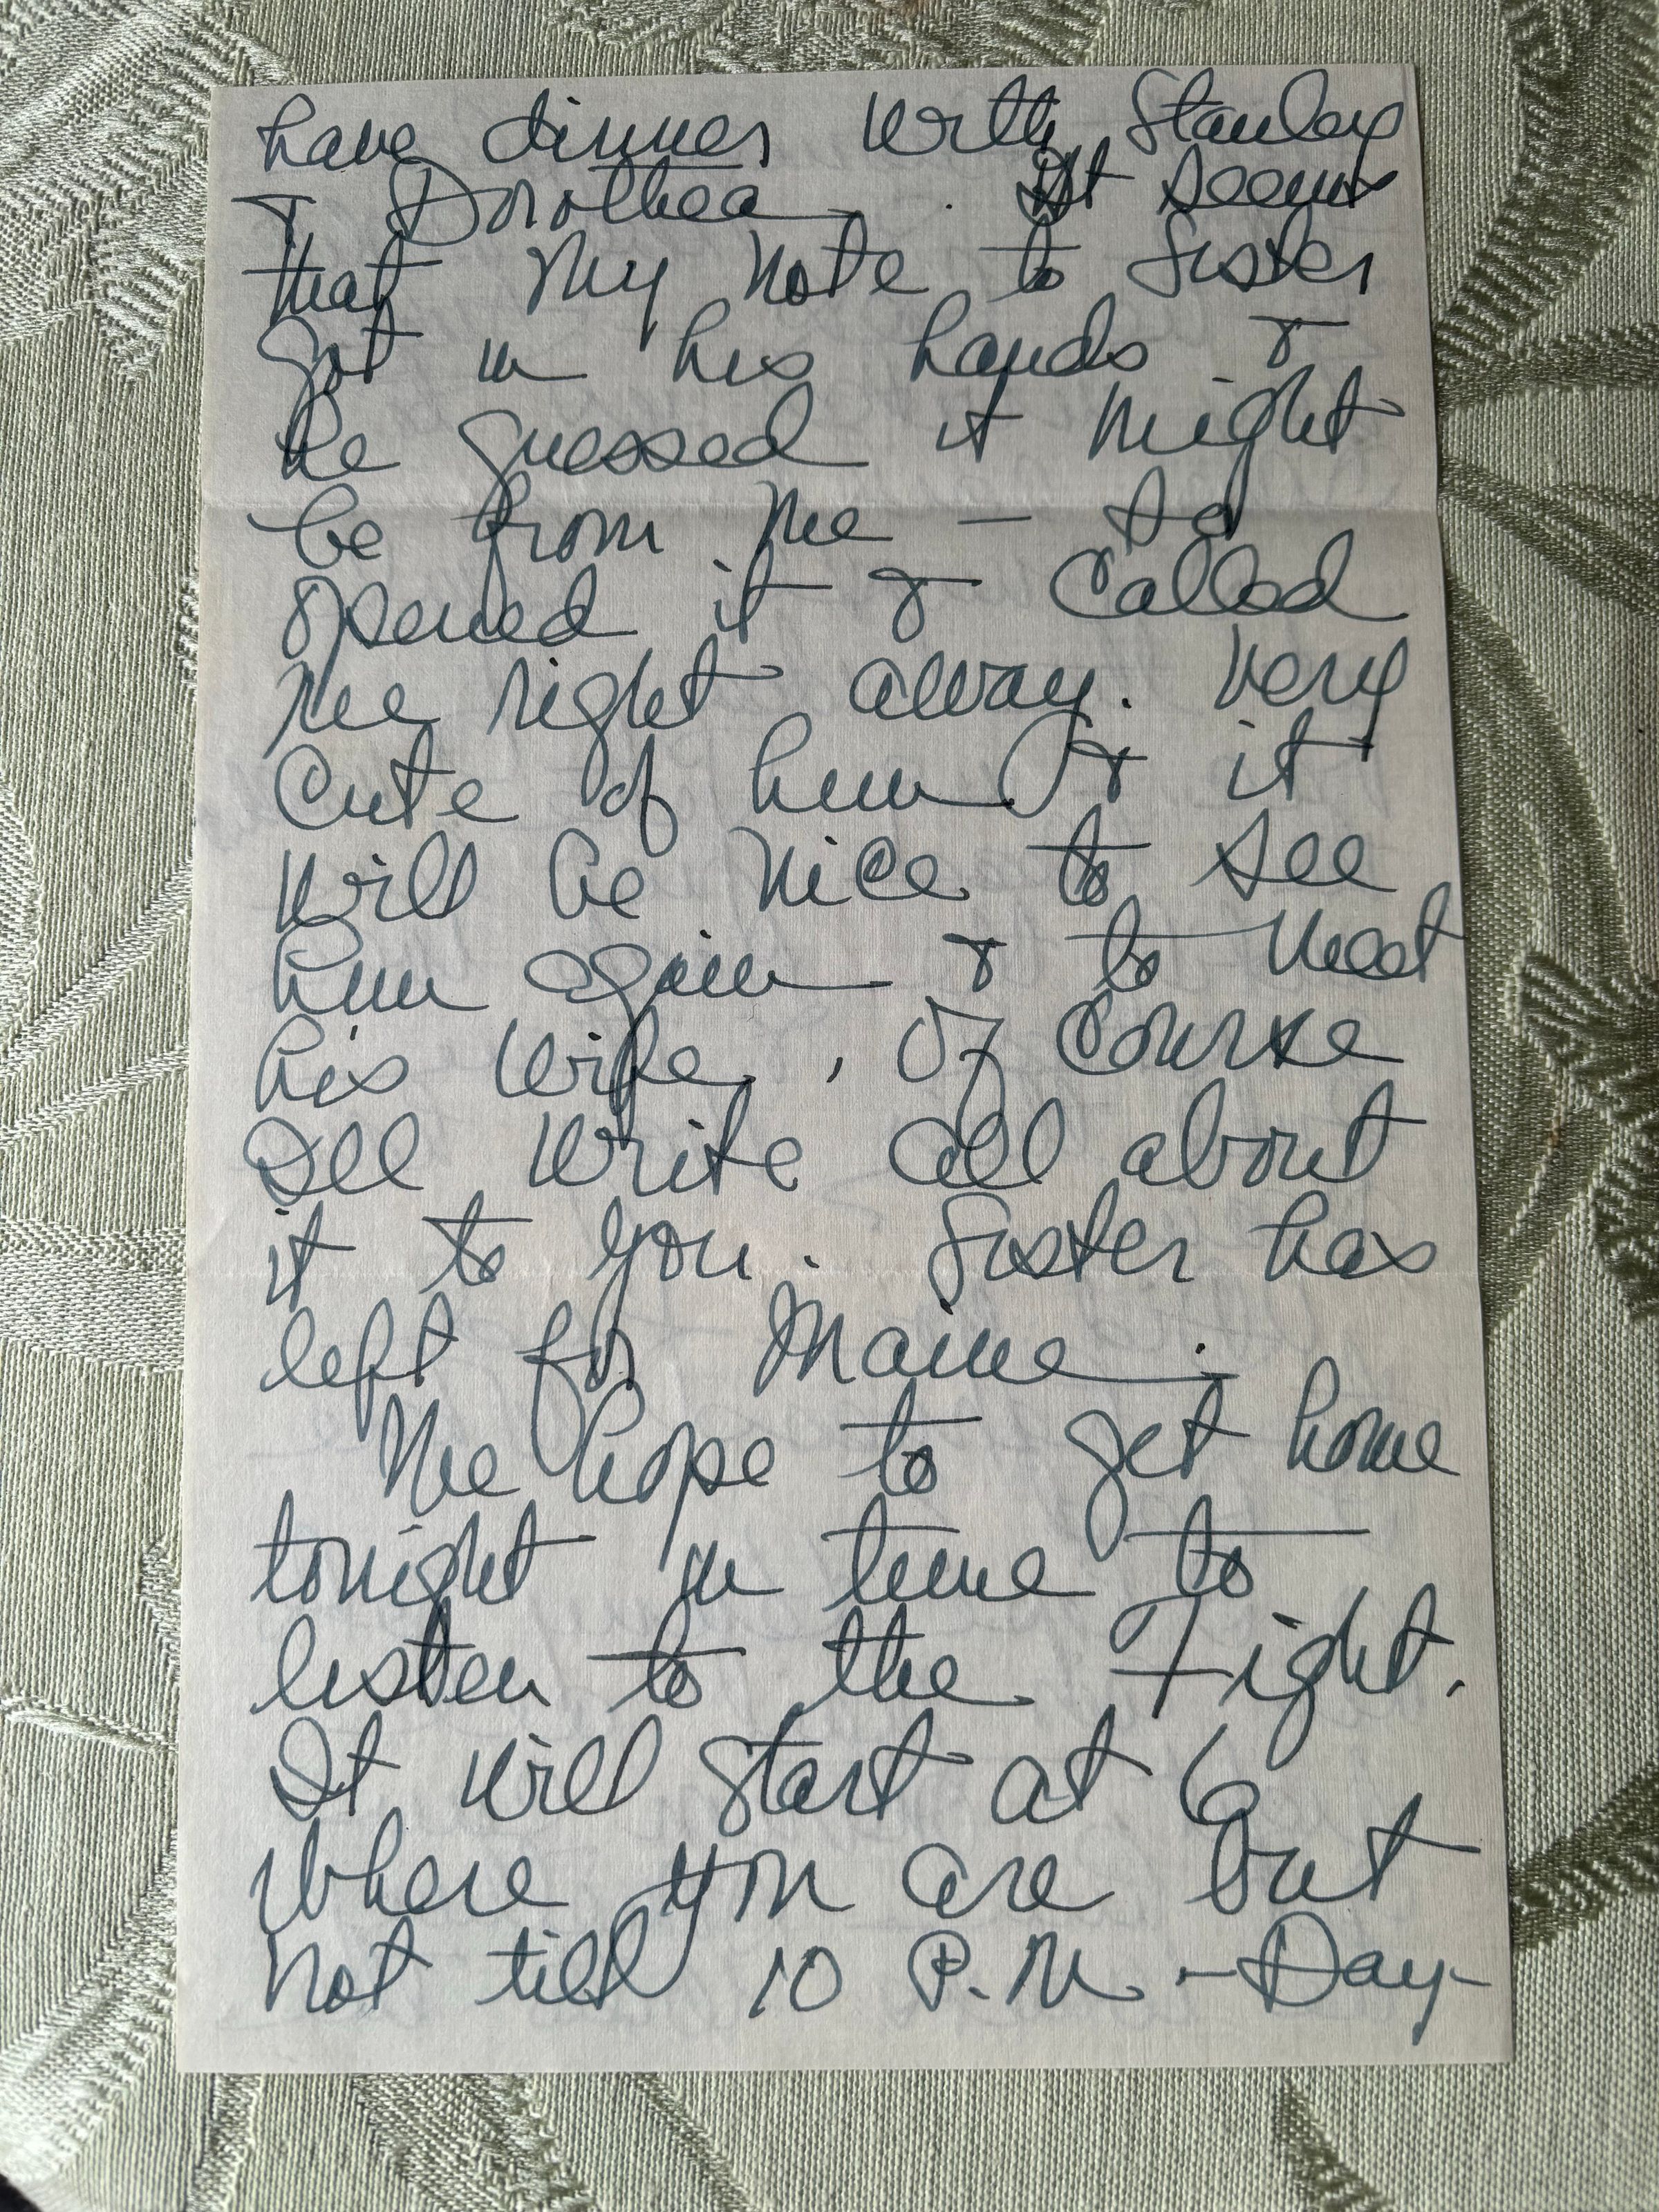 have dinner with Stanley
& Dorothea. It seems
that my note to Sister
got in his hands &
he guessed it might
be from me — so
opened it & called
me right away. Very
cute of him & it
will be nice to see
him again & to meet
his wife. Of course
Ill write all about
it to you. Sister has
left for Maine.
We hope to get home
tonight in time to
listen to the Fight.
It will start at 6
where you are but
not till 10 P.M. - Day-